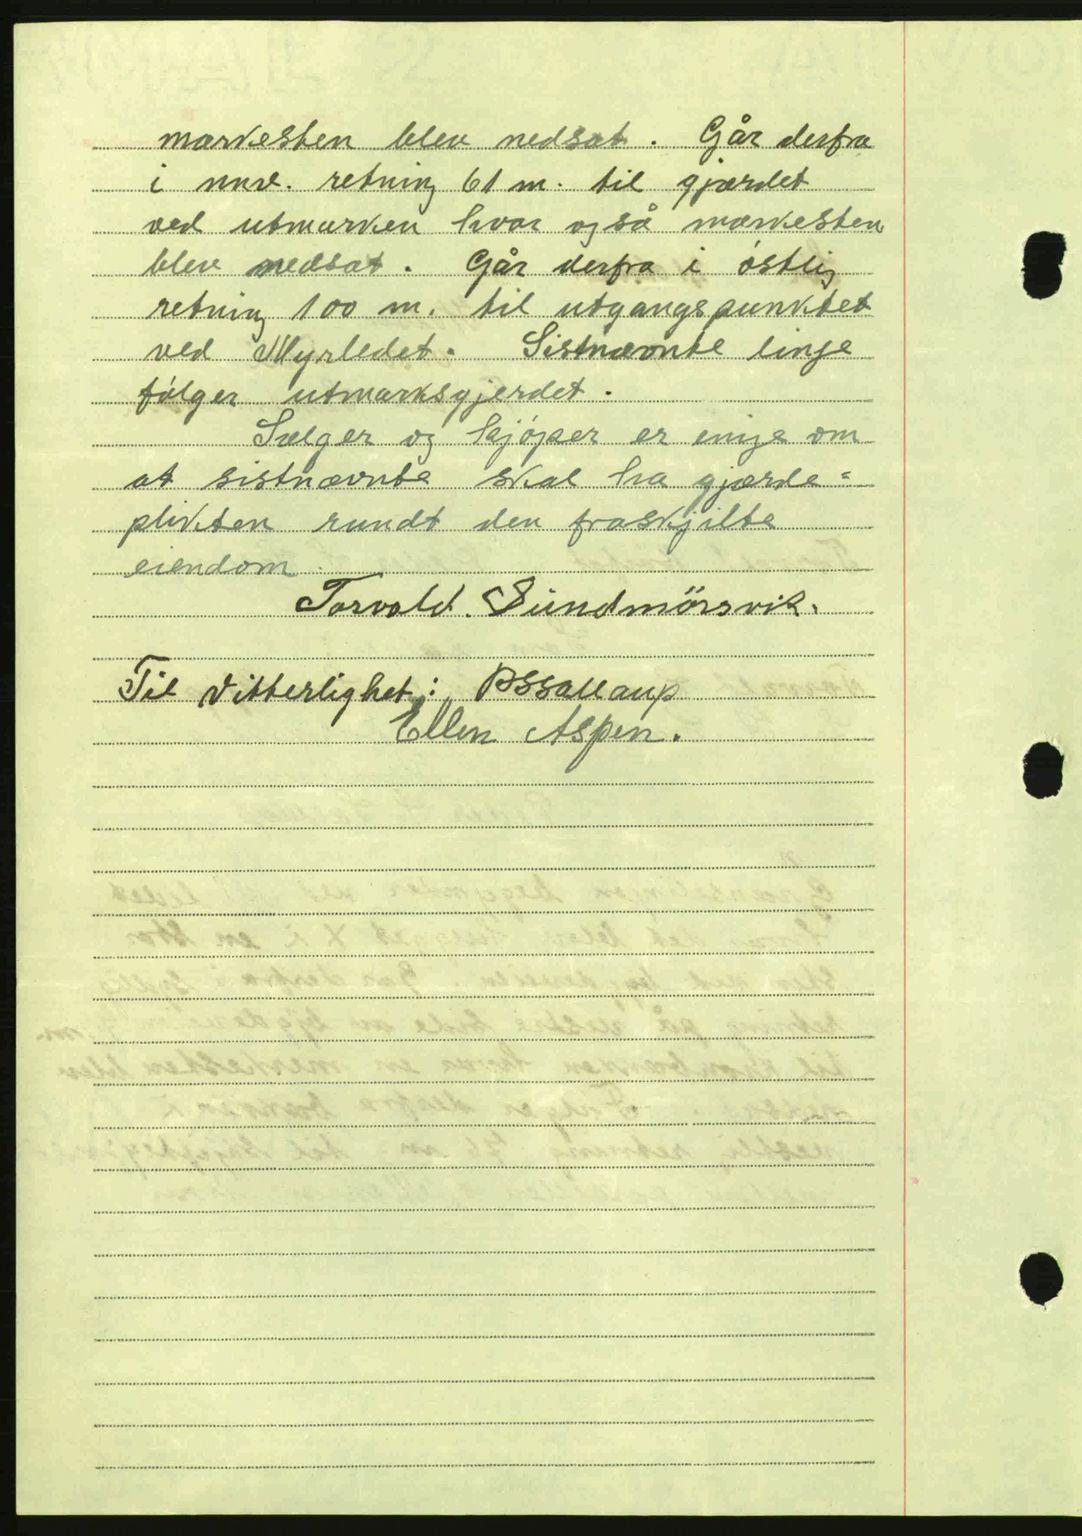 merkesten blev nedsat. Går derfra
i nnv. retning 61 m. til gjærdet
ved utmarken hvor også merkesten
blev nedsat. Går derfra i østlig
retning 100 m. til utgangspunktet
ved Myrledet. Sistnævnte linje
følger utmarksgjerdet.
Sælger og kjøper er enige om
at sistnævnte skal ha gjærde=
plikten rundt den fraskjilte
eiendom.
Torvald. Sundmörsvik.
Til Vitterlighet:
Ellen Aspen.